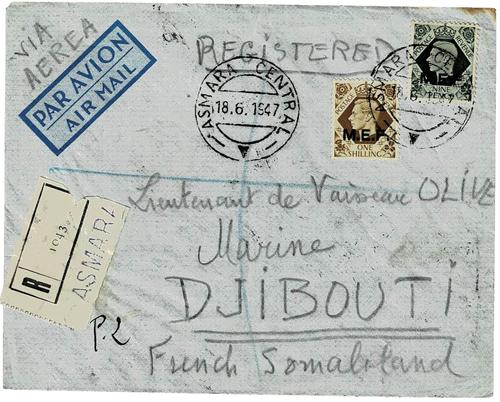 VIA
AEREA
PAR AVION
AIR MAIL
REGISTERED
ASMARA CENTRAL
18.6.1947
POSTAGE
M.E.F.
ONE
SHILLING
M.E.F.
NINE
PENCE
18.6.1947
R
1043
ASMARA
Lieutenant de Vaisseau OLIVE
Marine
DJIBOUTI
P.2
French Somaliland